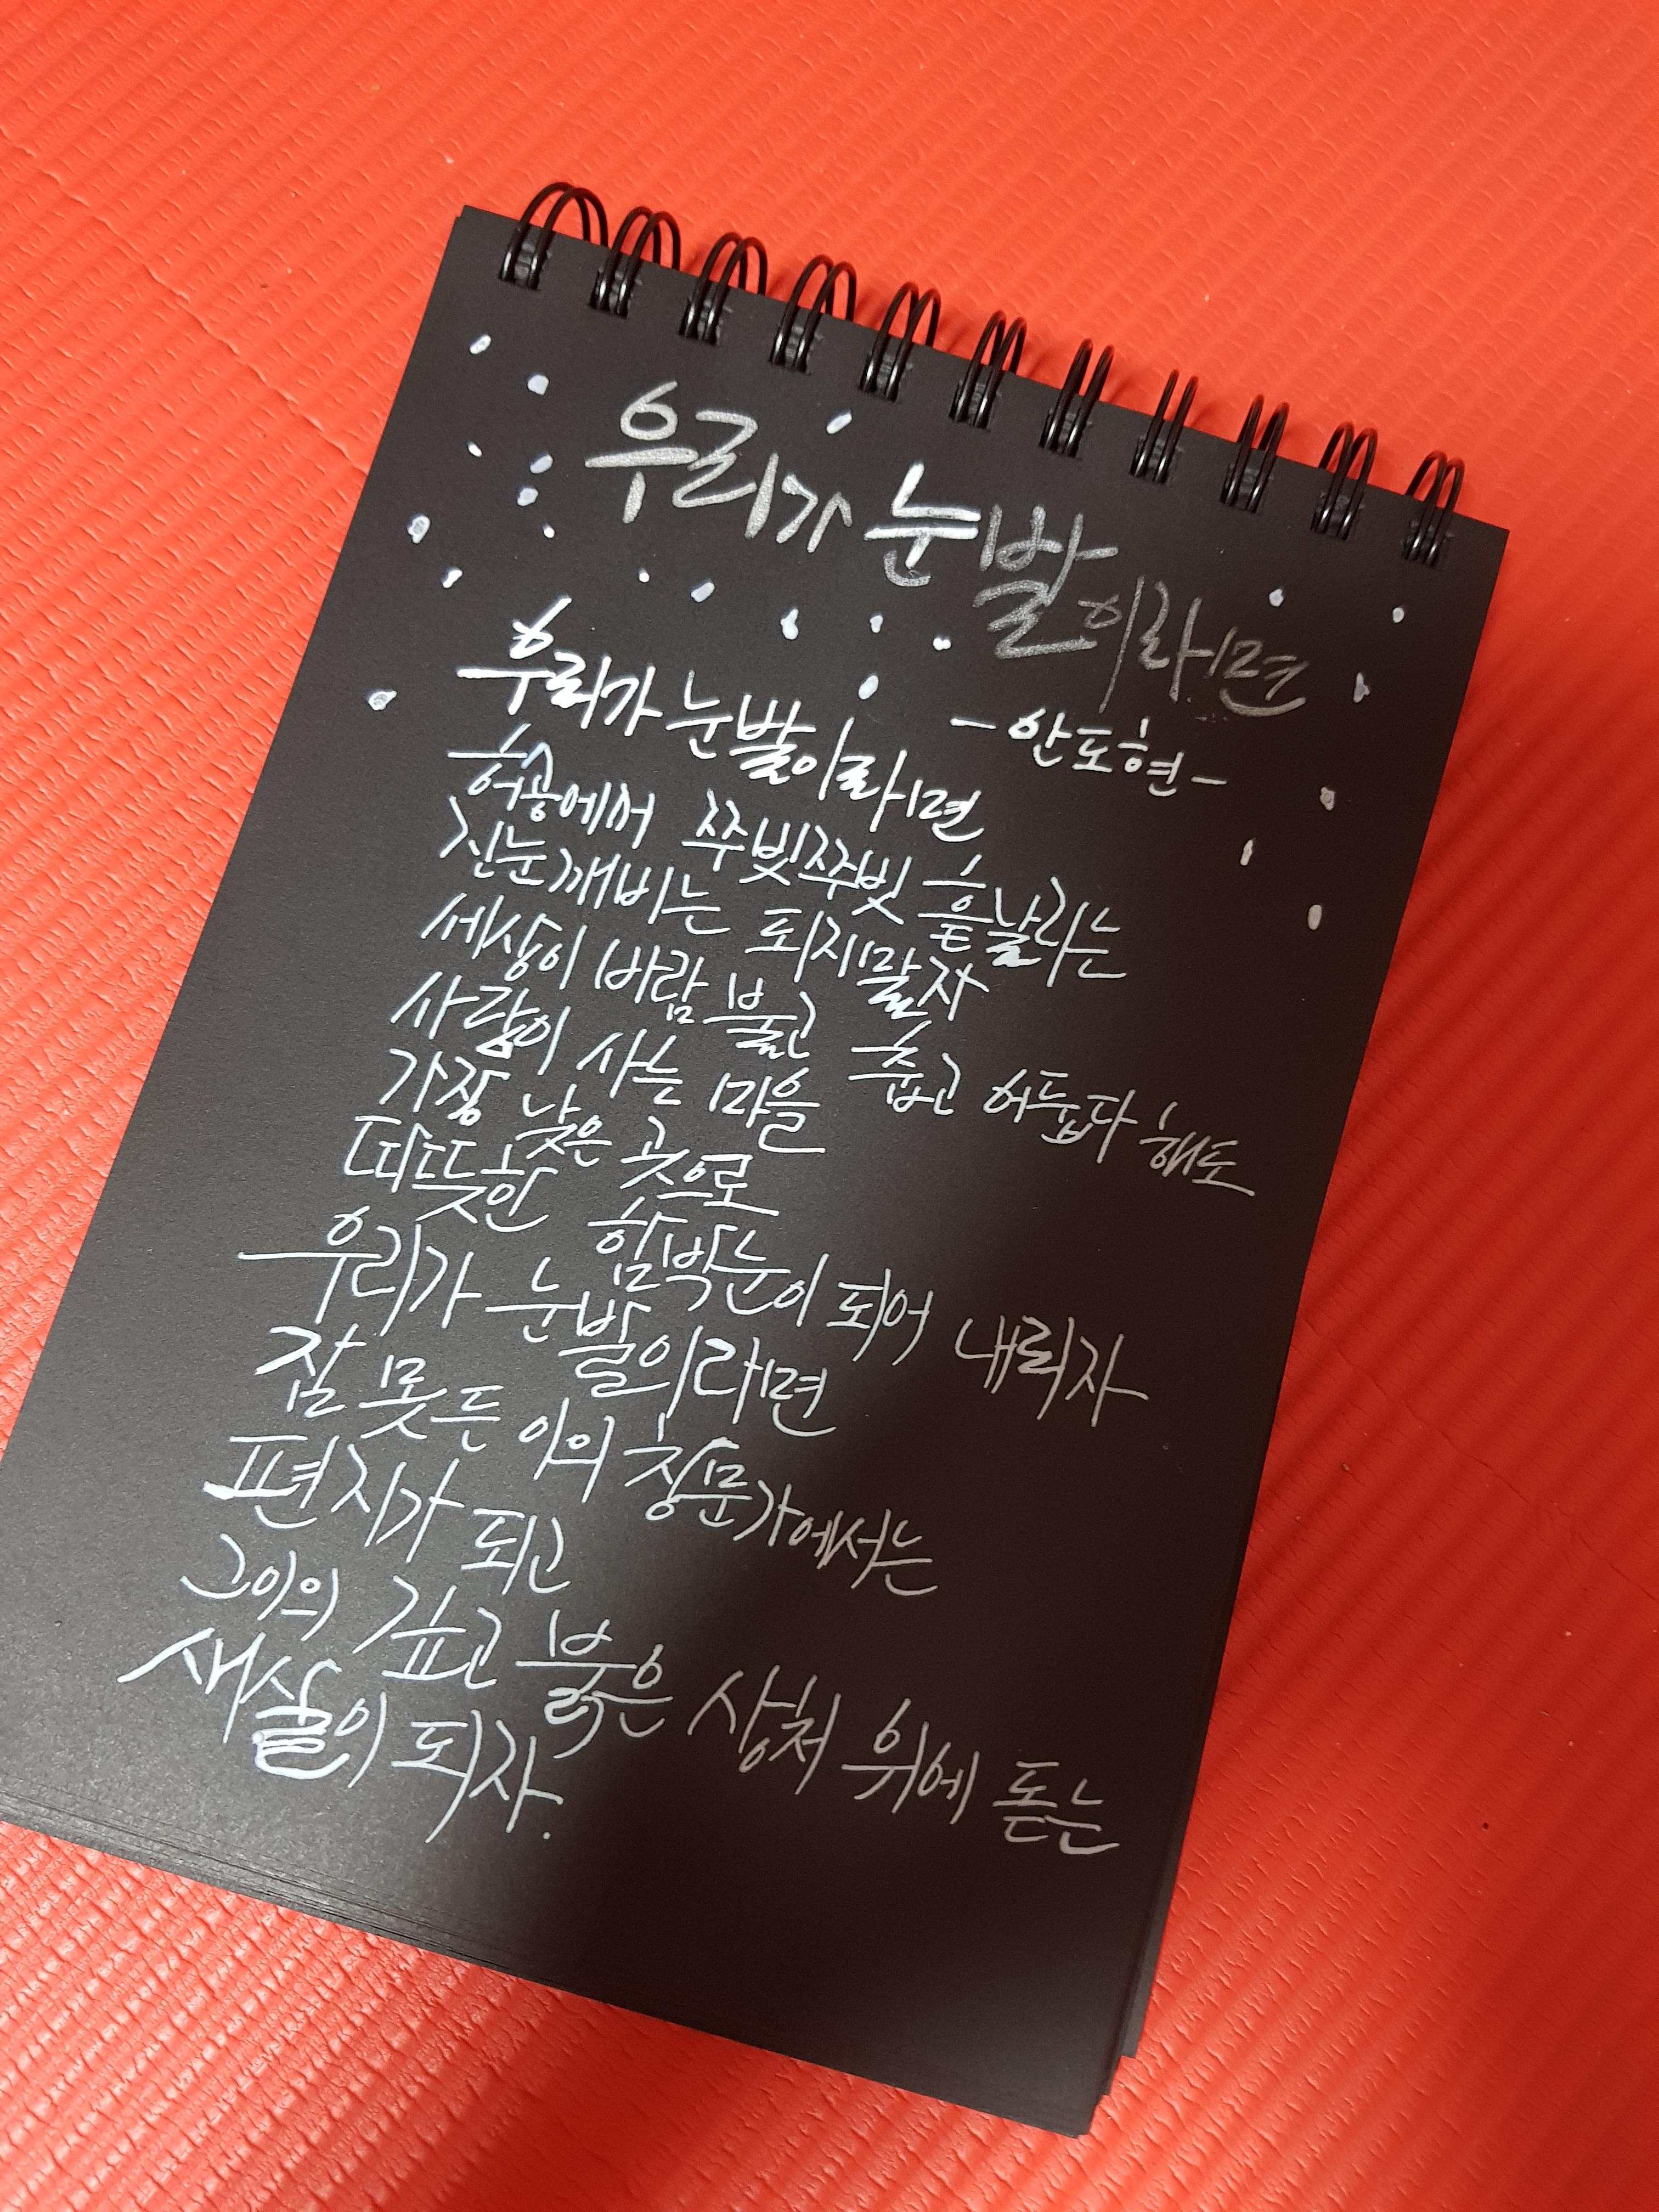 우리가 눈발이라면
-안도현-
우리가 눈발이라면
허공에서 쭈빗쭈빗 흩날리는
진눈깨비는 되지말자
세상이 바람 불고 춥고 어둡다 해도
사람이 사는 마을
가장 낮은 곳으로
따뜻한 함박눈이 되어 내리자
우리가 눈발이라면
잠 못든 이의 창문가에서는
편지가 되고
그이의 깊고 붉은 상처 위에 돋는
새살이 되자.